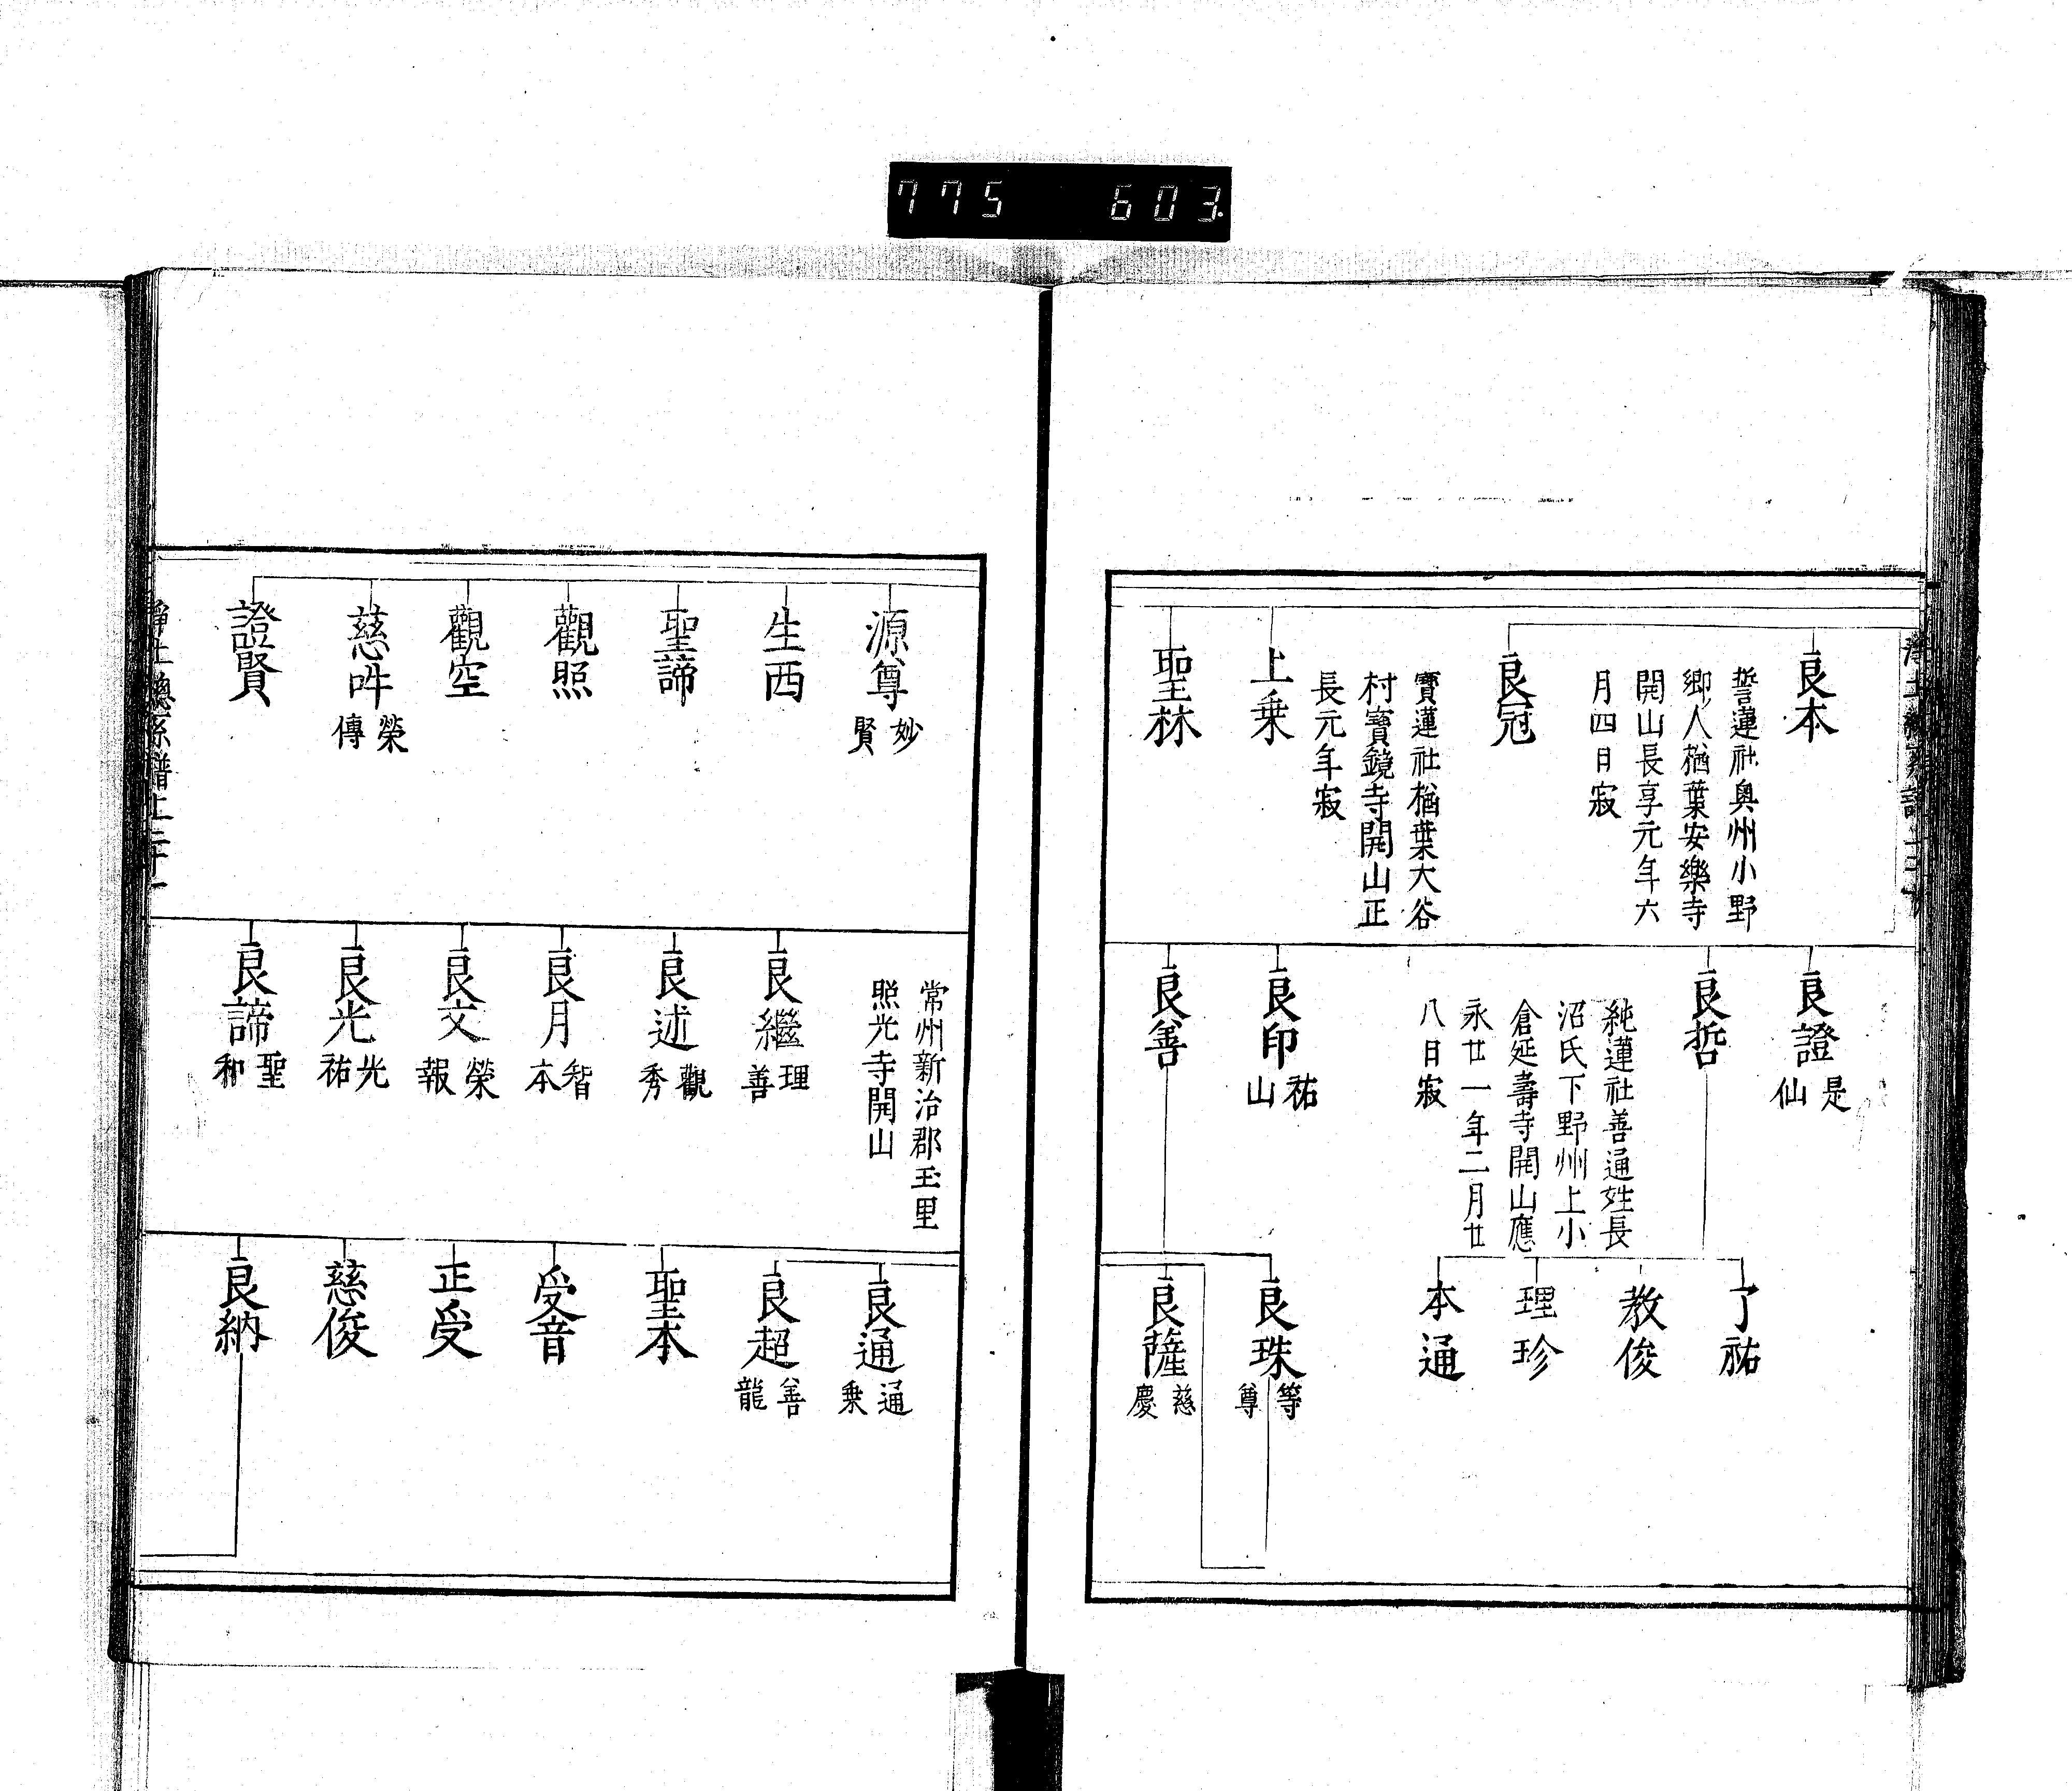 775 603.
良本
誓蓮社奥州小野
郷人楢葉安樂寺
開山長享元年六
月四日寂
良冠
寶蓮社楢葉大谷
村寶鏡寺開山正
長元年寂
上乗
聖林
良證
是
仙
良哲
純蓮社善通姓長
沼氏下野州上小
倉延壽寺開山應
永廿一年二月廿
八日寂
良印
祐
山
良善
了祐
教俊
理珍
本通
良珠
等
尊
良薩
慈
慶
源尊
妙
賢
生西
聖諦
觀照
觀空
慈吽
榮
傳
證賢
常州新治郡玉里
照光寺開山
良繼
理
善
良述
觀
秀
良月
智
本
良文
榮
報
良光
光
祐
良諦
聖
和
良通
通
乗
良超
善
龍
聖本
受音
正受
慈俊
良納
淨土總系譜上二十一